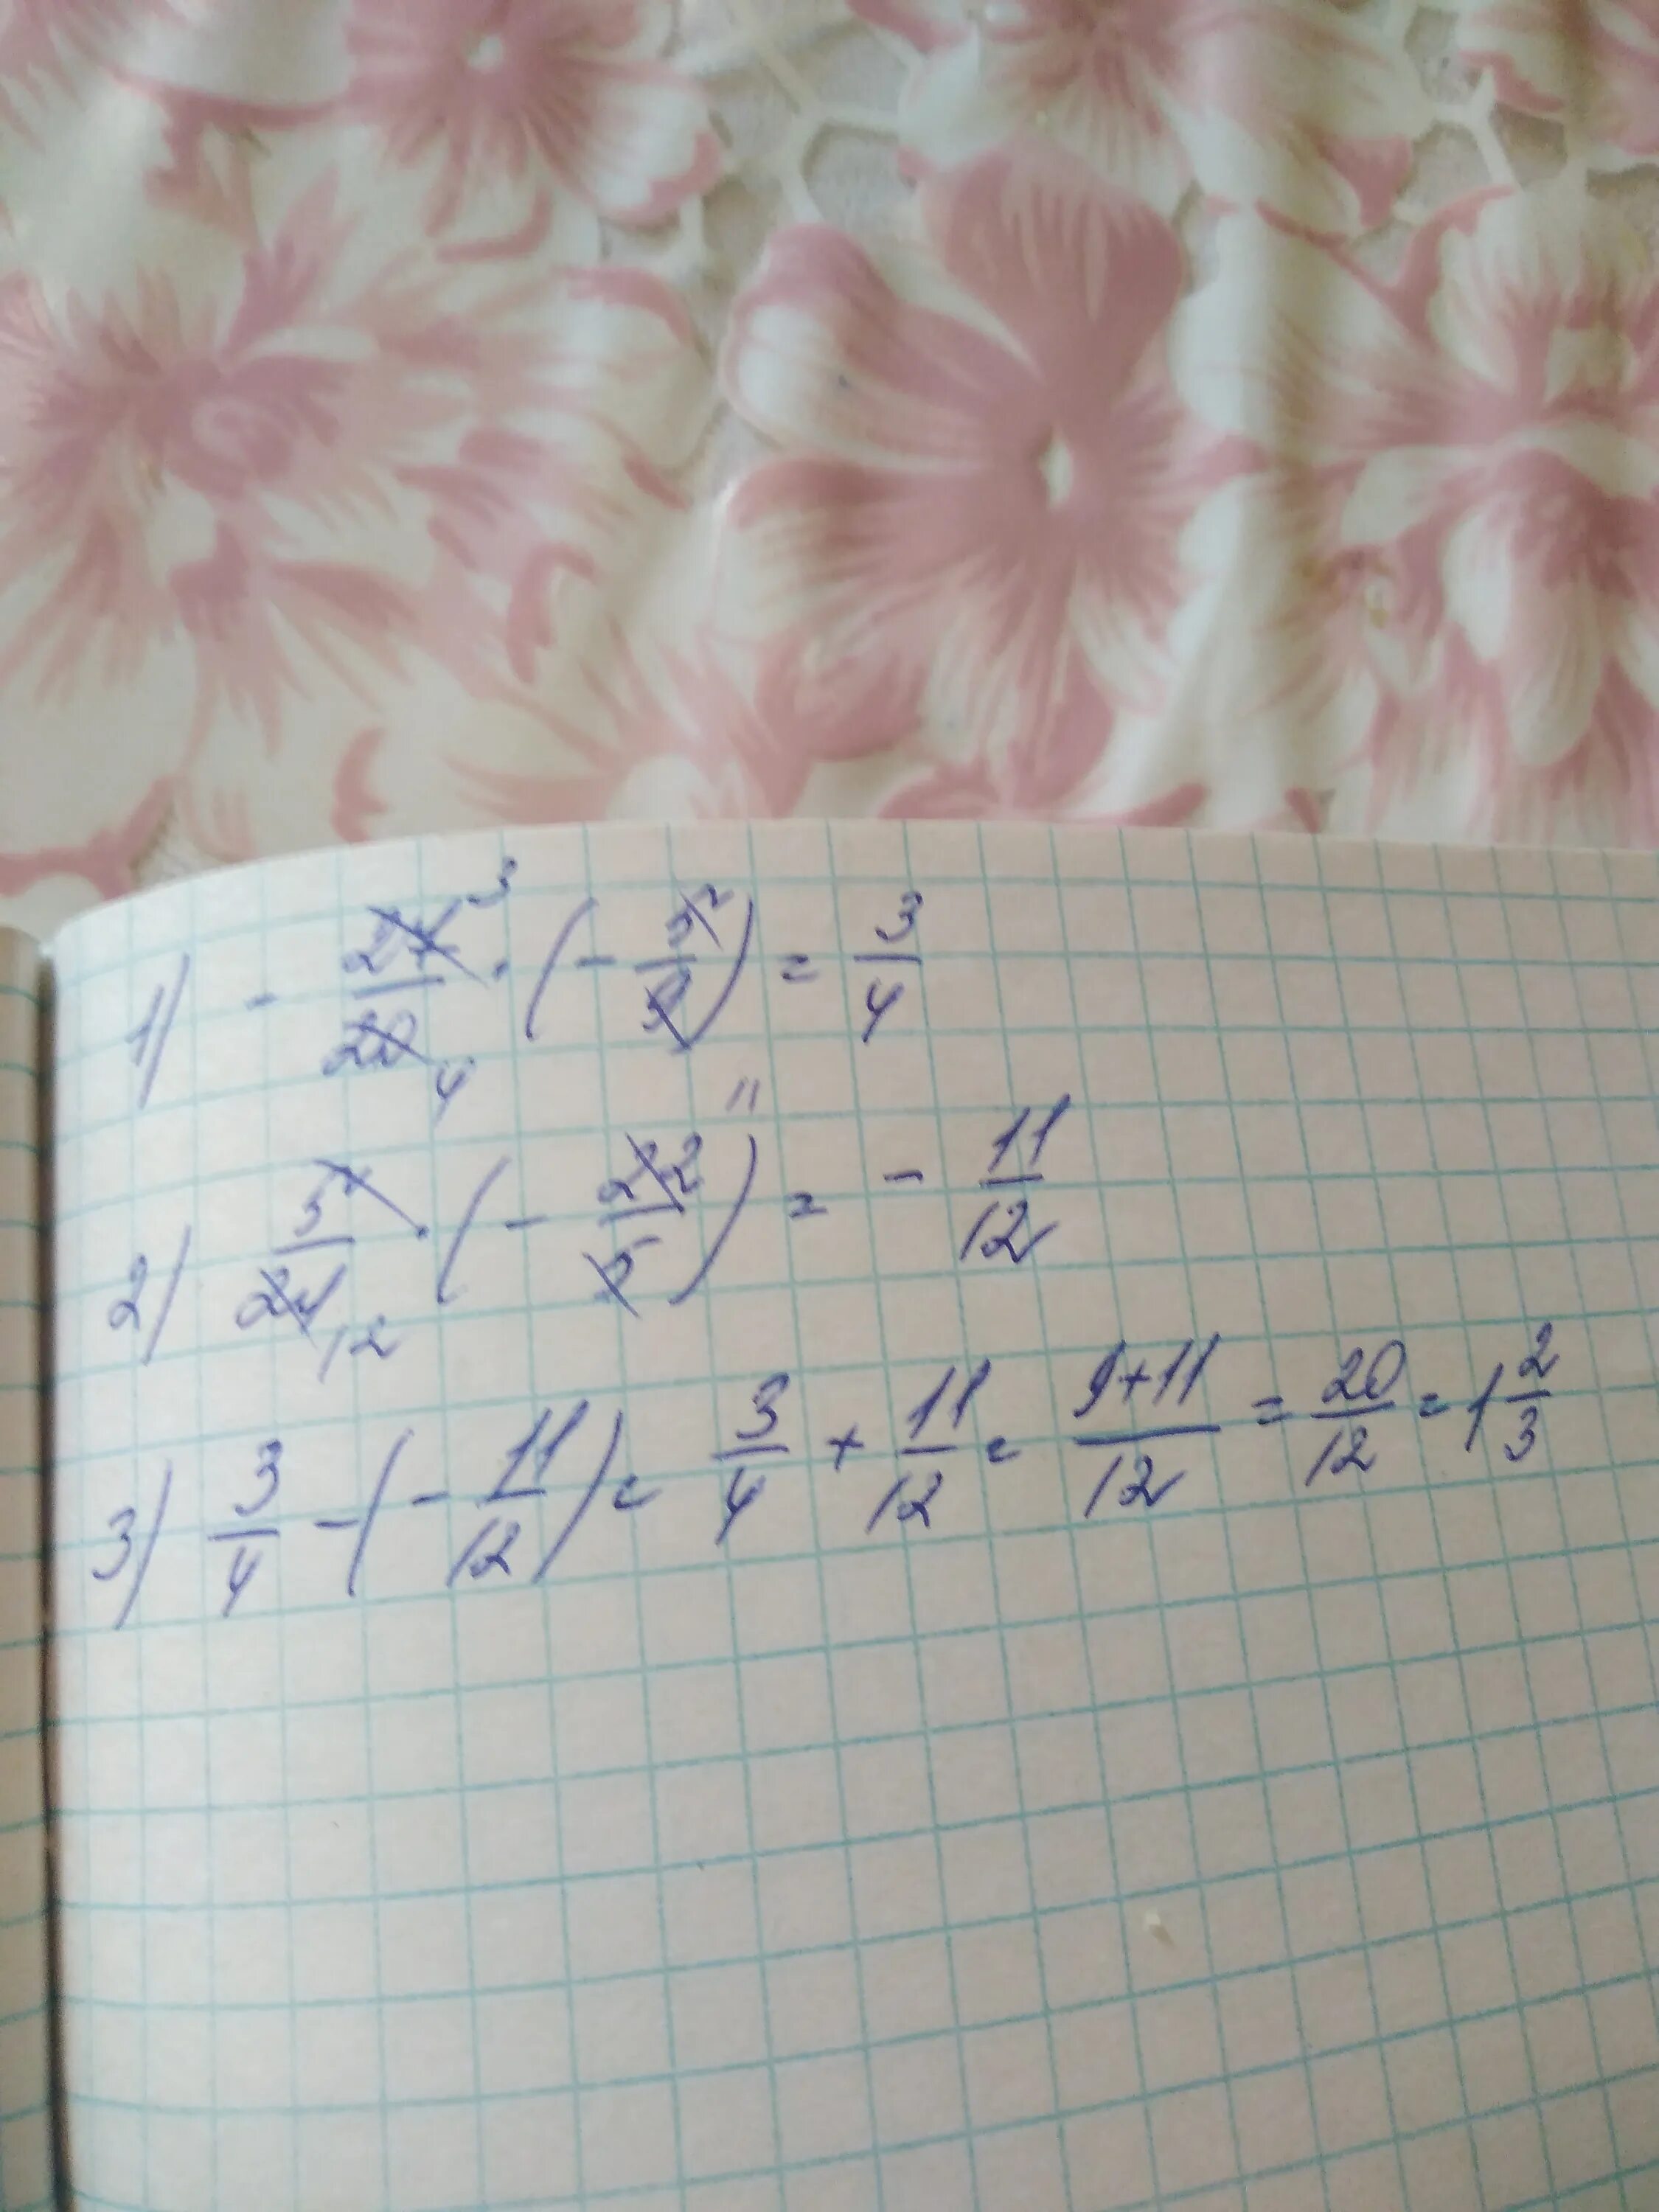 1) - 27/20 3 4 · ( - 5/9 ) = 3/4
2) 5/24 12 · ( - 22/5 ) 11 = - 11/12
3) 3/4 - ( - 11/12 ) = 3/4 + 11/12 = 9+11/12 = 20/12 = 1 2/3